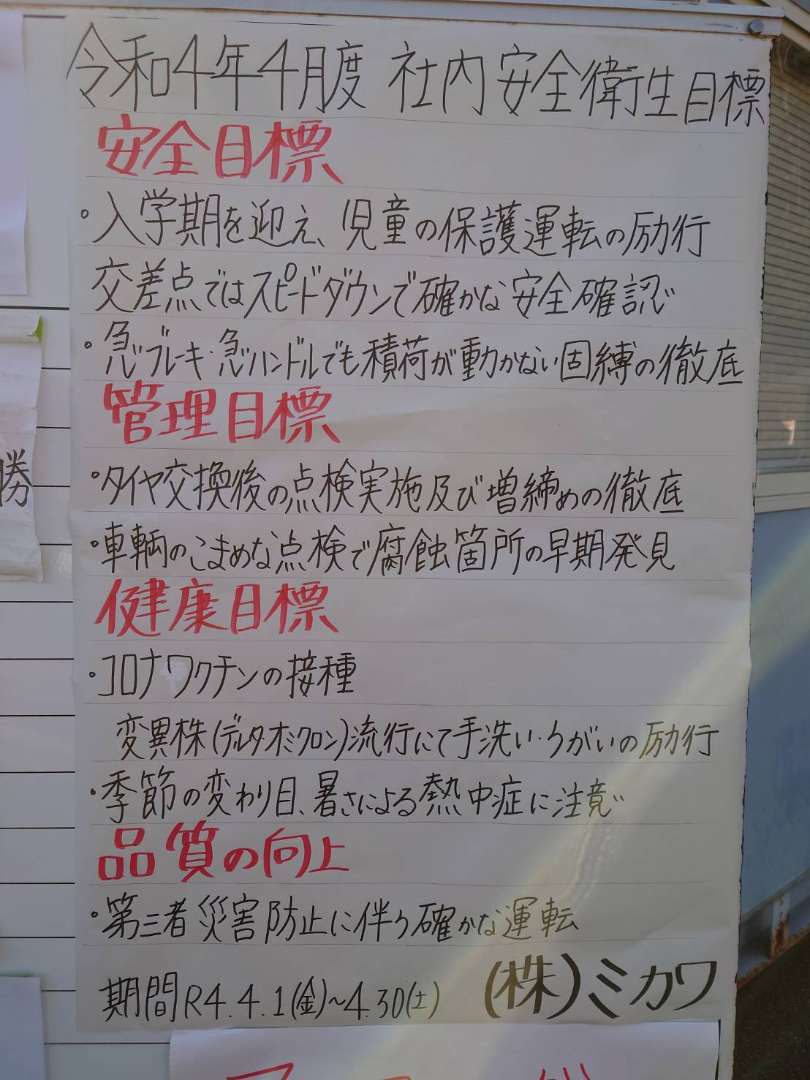 令和4年4月度 社内安全衛生目標
安全目標
・入学期を迎え、児童の保護運転の励行
交差点ではスピードダウンで確かな安全確認
・急ブレーキ・急ハンドルでも積荷が動かない固縛の徹底
管理目標
・タイヤ交換後の点検実施及び増締めの徹底
・車輌のこまめな点検で腐蝕箇所の早期発見
健康目標
・コロナワクチンの接種
変異株(デルタオミクロン)流行にて手洗い・うがいの励行
・季節の変わり目、暑さによる熱中症に注意
品質の向上
・第三者災害防止に伴う確かな運転
期間R4.4.1(金)~4.30(土) (株)ミカワ
勝